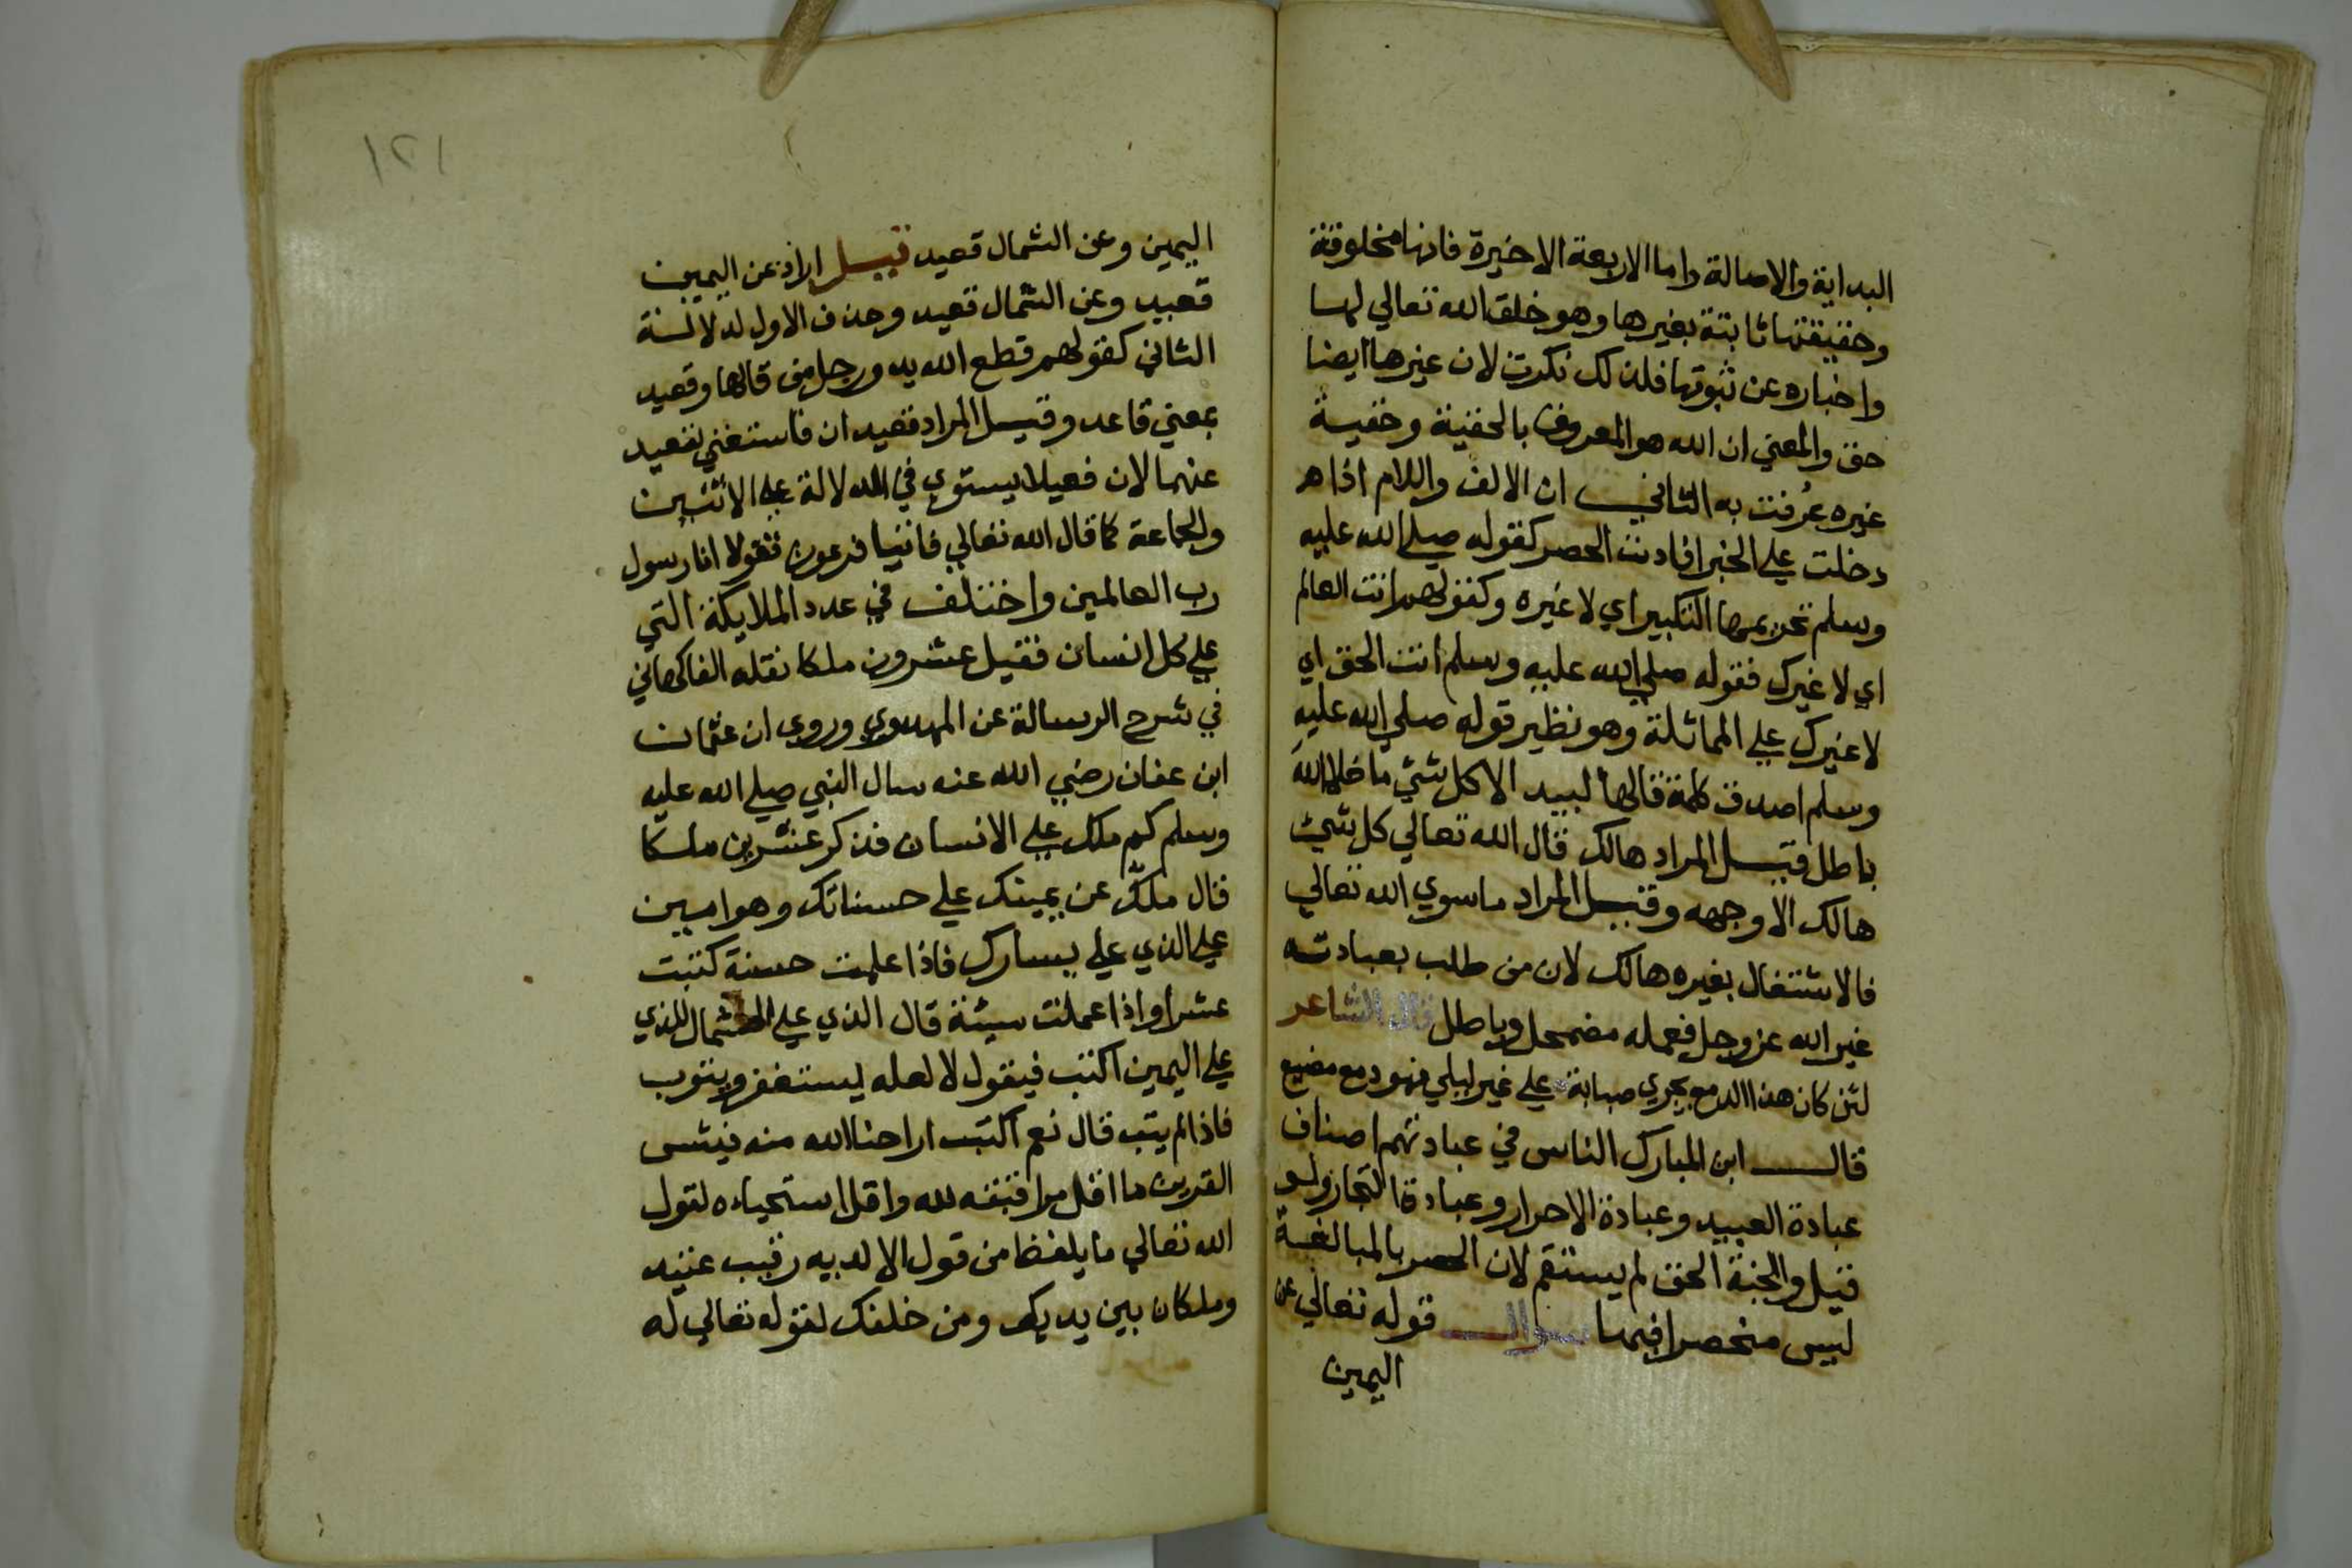 البداية والاصالة واما الاربعة الاخيرة فانها مخلوقة
وحقيقتها ثابتة بغيرها وهو خلق الله تعالي لها
واخباره عن ثبوتها فلذلك نكرت لان غيرها ايضا
حق والمعني ان الله هو المعروف بالحقية وحقية
غيره عُرفت به الثاني ان الالف واللام اذا
دخلت علي الخبر افادت الحصر كقوله صلي الله عليه
وسلم تحريمها التكبير اي لا غيره وكقولهم انت العالم
اي لا غيرك فقوله صلي الله عليه وسلم انت الحق اي
لا غيرك علي المماثلة وهو نظير قوله صلي الله عليه
وسلم اصدق كلمة قالها لبيد الا كل شئ ما خلا اللهَ
باطل قيل المراد هالك قال الله تعالي كل شئ
هالك الا وجهه وقيل المراد ما سوي الله تعالي
فالاشتغال بغيره هالك لان من طلب بعبادته
غير الله عز وجل فعمله مضمحل وباطل قال الشاعر
لئن كان هذا الدمع يجري صبابة علي غير ليلي فهو دمع مضيع
قال ابن المبارك الناس في عبادتهم اصناف
عبادة العبيد وعبادة الاحرار وعبادة التجار ولو
قيل والجنة الحق لم يستقم لان الحصر بالمبالغة
ليس منحصرا فيها سوال قوله تعالي عن
اليمين
١٢١
اليمين وعن الشمال قعيد قيل اراد عن اليمين
قعيد وعن الشمال قعيد وحذف الاول لدلالة
الثاني كقولهم قطع الله يد ورجل من قالها وقعيد
بمعني قاعد وقيل المراد قعيدان فاستغني بقعيد
عنهما لان فعيلا يستوي في الدلالة علي الاثنين
والجماعة كما قال الله تعالي فاتيا فرعون فقولا انا رسول
رب العالمين واختلف في عدد الملايكة التي
علي كل انسان فقيل عشرون ملكا نقله الفاكهاني
في شرح الرسالة عن المهدوي وروي ان عثمان
ابن عفان رضي الله عنه سال النبي صلي الله عليه
وسلم كم ملك علي الانسان فذكر عشرين ملكا
قال ملكٌ عن يمينك علي حسناتك وهو امين
علي الذي علي يسارك فاذا علمت حسنة كتبت
عشرا واذا عملت سيئة قال الذي علي الشمال للذي
علي اليمين اكتب فيقول لا لعله يستغفر ويتوب
فاذا لم يتب قال نعم اكتب اراحنا الله منه فبئس
القرين ما اقل مراقبته لله واقل استحياءه لقول
الله تعالي ما يلفظ من قول الا لديه رقيب عتيد
وملكان بين يديك ومن خلفك لقوله تعالي له